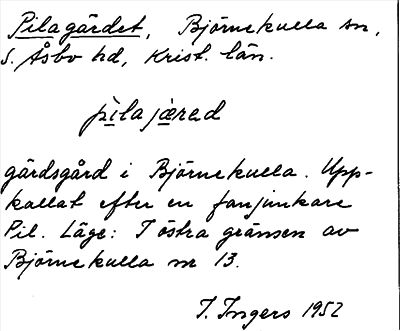 Pilagärdet, Björnekulla sn,
S. Åsbo hd, Krist. län.
pìlajærad
gärdsgård i Björnekulla. Upp-
kallat efter en fanjunkare
Pil. Läge: I östra gränsen av
Björnekulla nr 13.
I. Ingers 1952